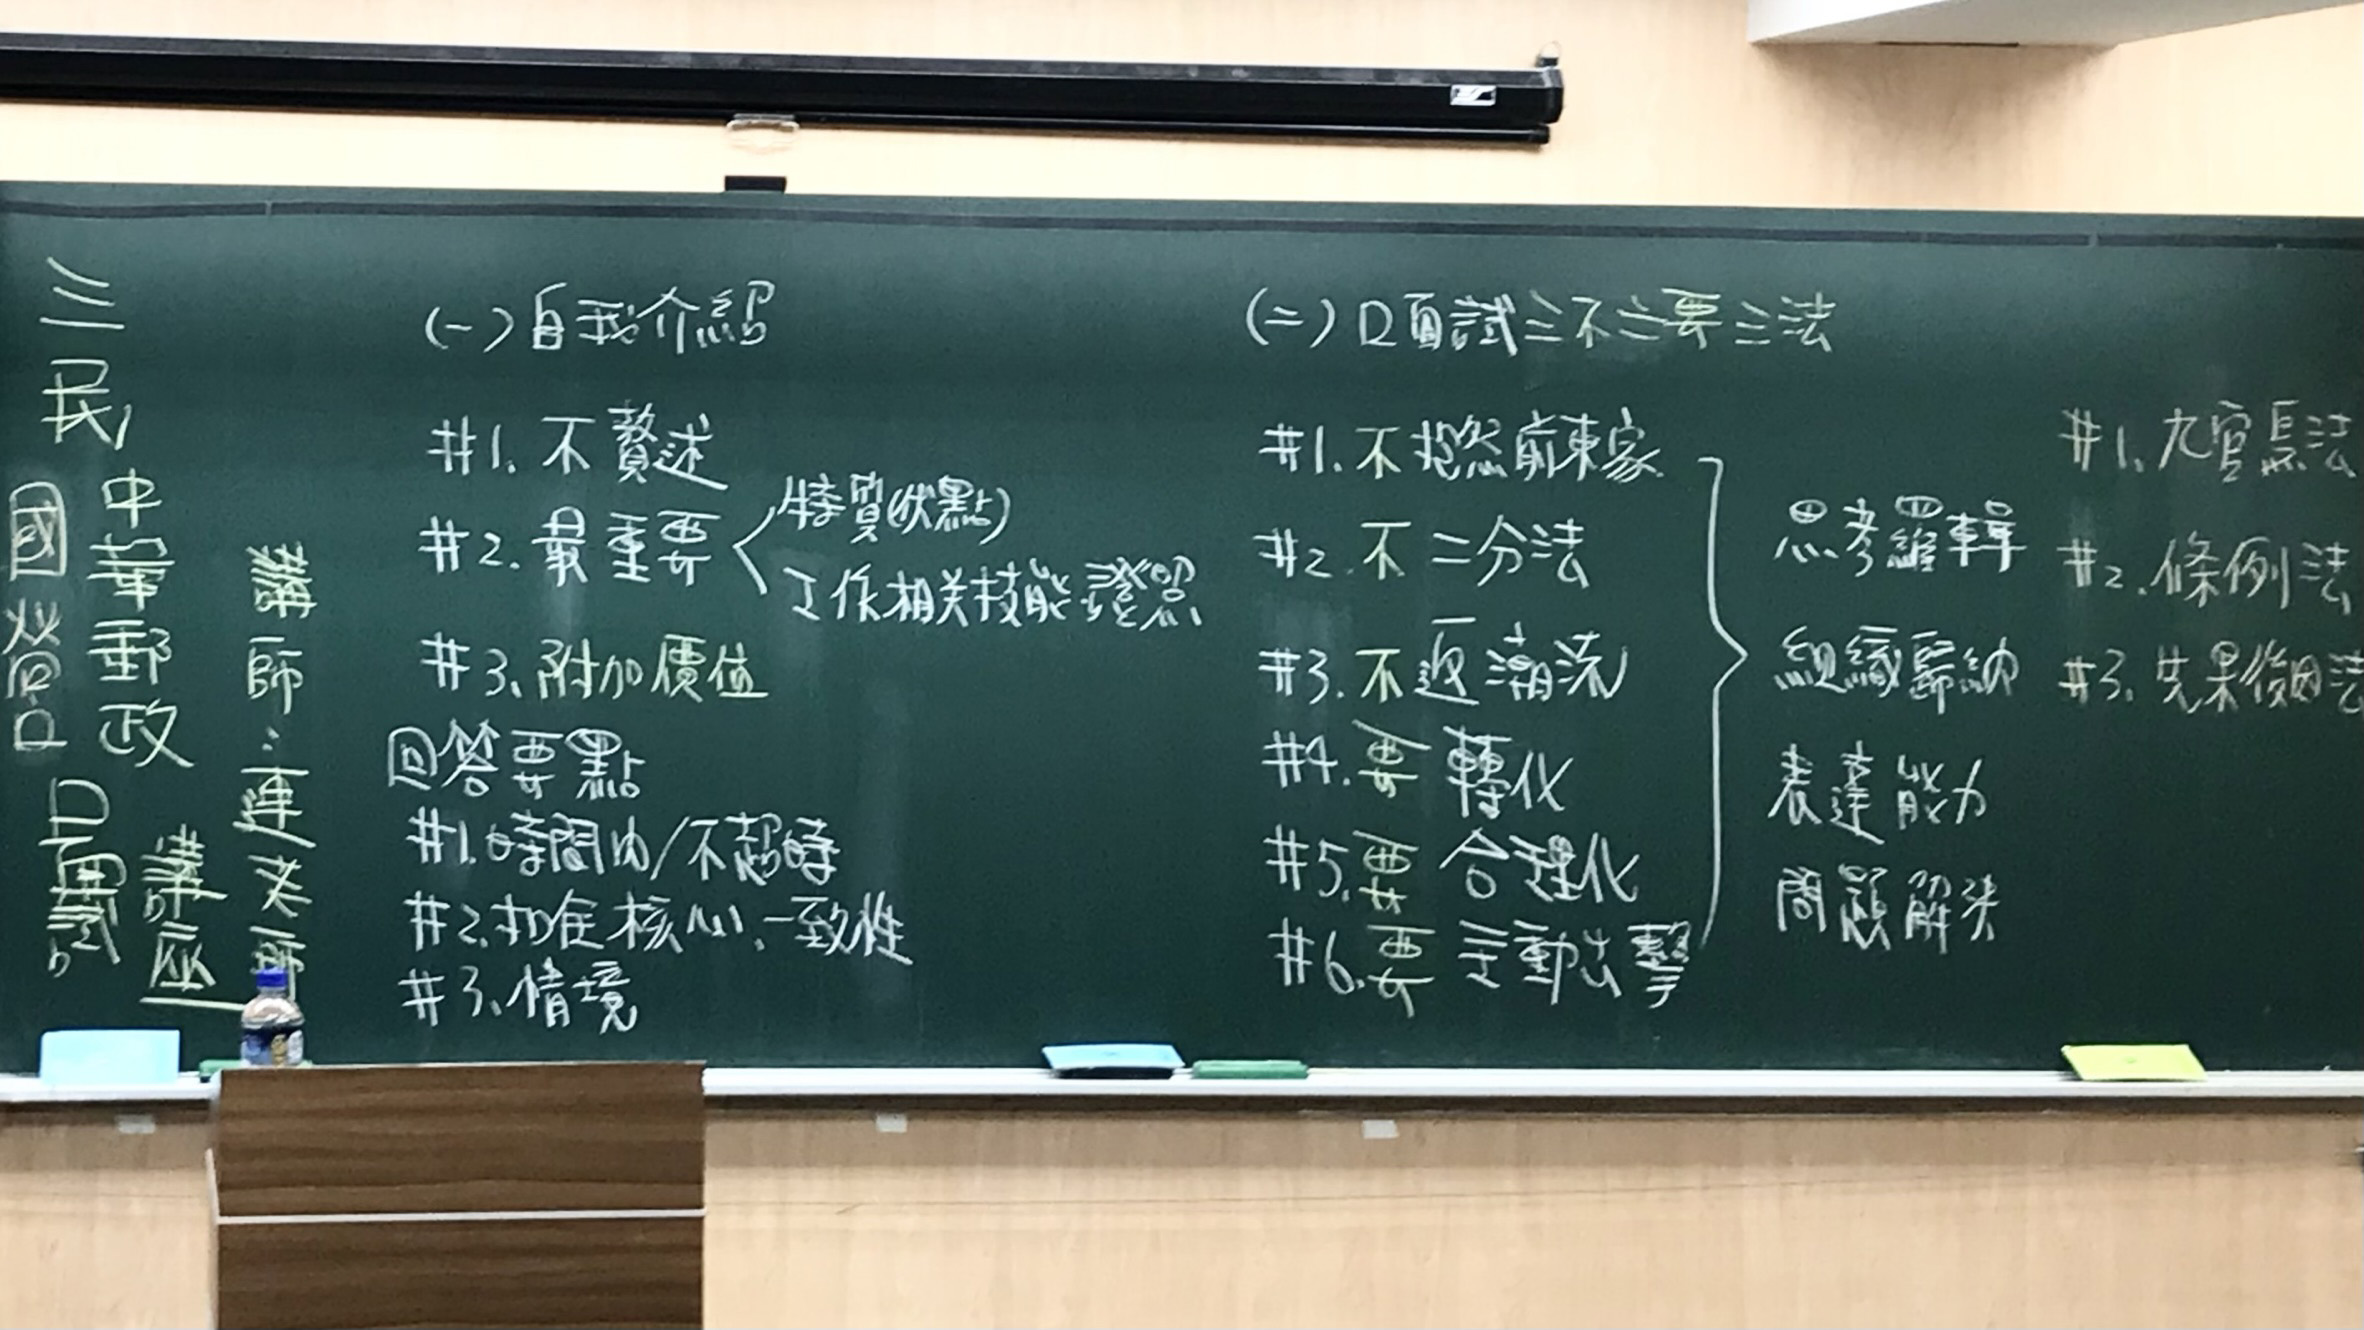 三民
國營
中華郵政
口面試
講座
講師：連老師
(一)自我介紹
#1. 不贅述
#2. 最重要
特質(优點)
工作相关技能證照
#3. 附加價值
回答要點
#1. 時間內/不超時
#2. 扣住核心、一致性
#3. 情境
(二)口面試三不三要三法
#1. 不抱怨前東家
#2. 不二分法
#3. 不返潮流
#4. 要轉化
#5. 要合理化
#6. 要主動出擊
思考邏輯
組織歸納
表達能力
問題解決
#1. 九官鳥法
#2. 條例法
#3. 先果後因法